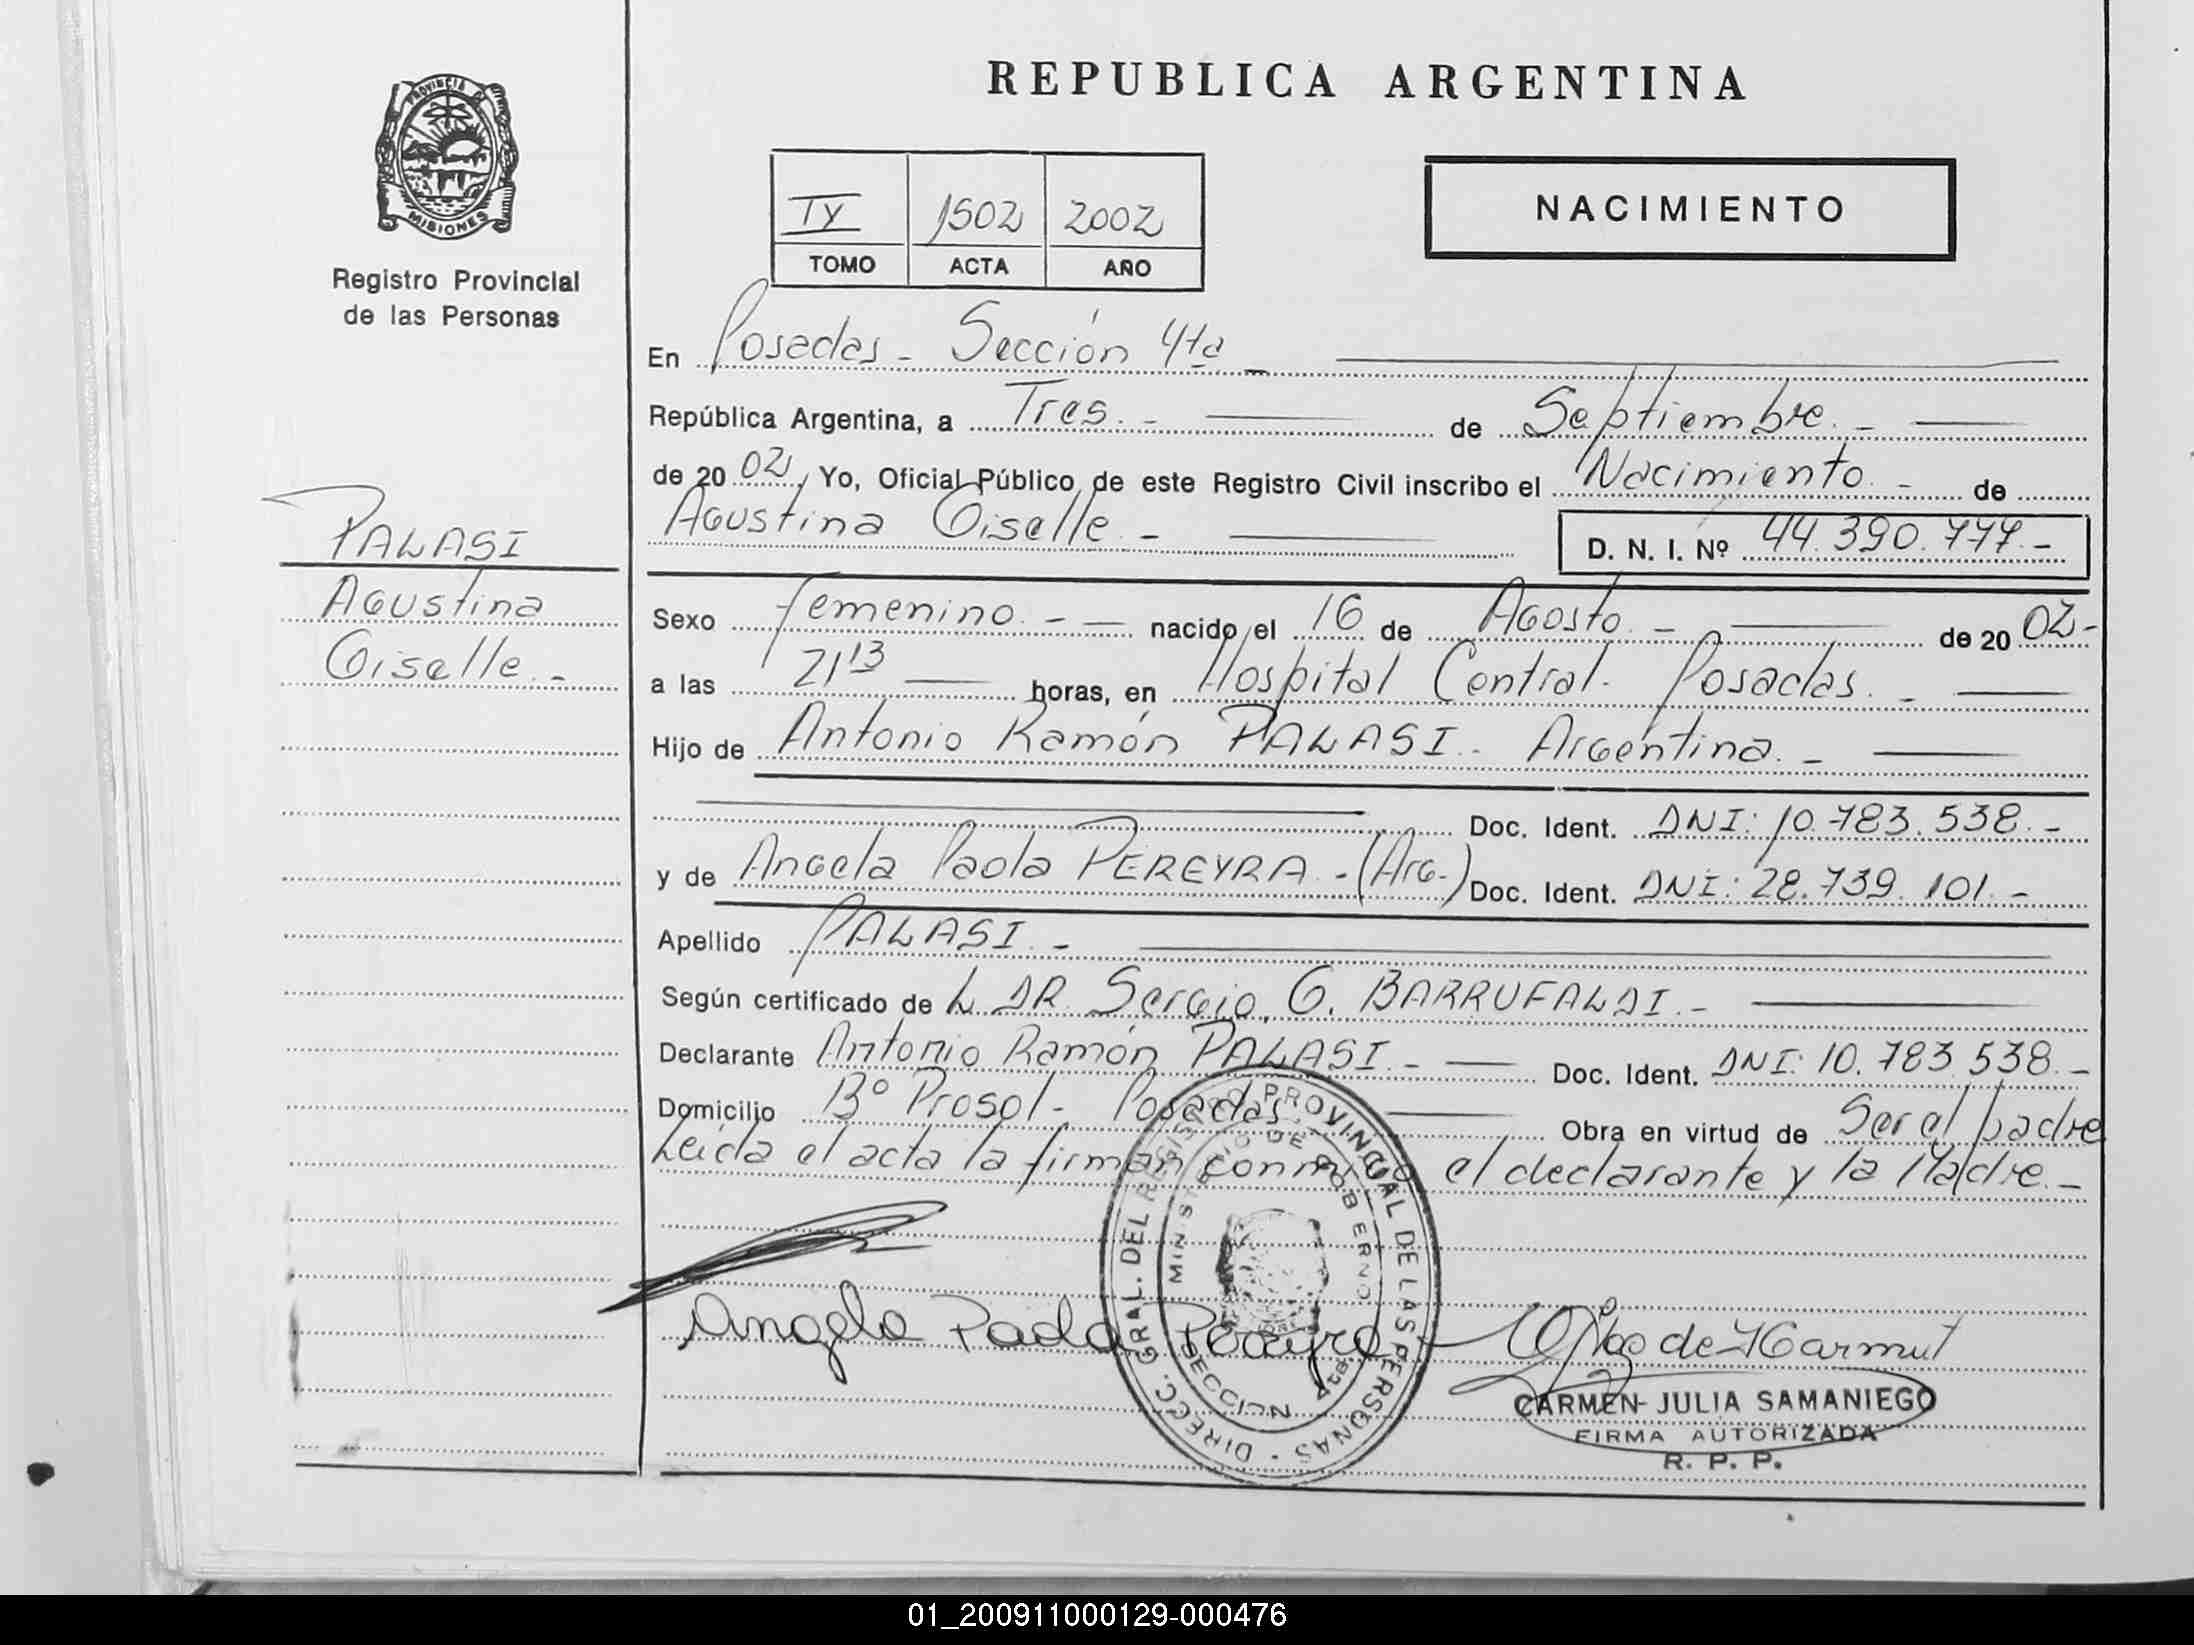 PROVINCIA DE
MISIONES
Registro Provincial
de las Personas
REPUBLICA ARGENTINA
NACIMIENTO
IV 1502 2002
TOMO ACTA AÑO
En Posadas - Sección 4ta -
República Argentina, a Tres.- de Septiembre.-
de 20 02, Yo, Oficial Público de este Registro Civil inscribo el Nacimiento.- de
Agustina Giselle.-
D. N. I. Nº 44.390.777.-
PALASI
Agustina
Giselle.-
Sexo femenino.- nacido el 16 de Agosto.- de 20 02-
a las 21 13 horas, en Hospital Central. Posadas.-
Hijo de Antonio Ramón PALASI.- Argentina.-
Doc. Ident. DNI: 10.783.538.-
y de Angela Paola PEREYRA.-(Arg.-) Doc. Ident. DNI: 28.739.101.-
Apellido PALASI.-
Según certificado de L DR. Sergio, G. BARRUFALDI.-
Declarante Antonio Ramón PALASI.- Doc. Ident. DNI: 10.783.538.-
Domicilio Bº Prosol- Posadas.- Obra en virtud de Ser el padre
Leida el acta la firman conmigo el declarante y la Madre.-
Angela Paola Pereyra
DIRECC. GRAL. DEL REGISTRO PROVINCIAL DE LAS PERSONAS
MINISTERIO DE GOBIERNO
SECCION 4ta
de Harmut
CARMEN JULIA SAMANIEGO
FIRMA AUTORIZADA
R. P. P.
01_200911000129-000476